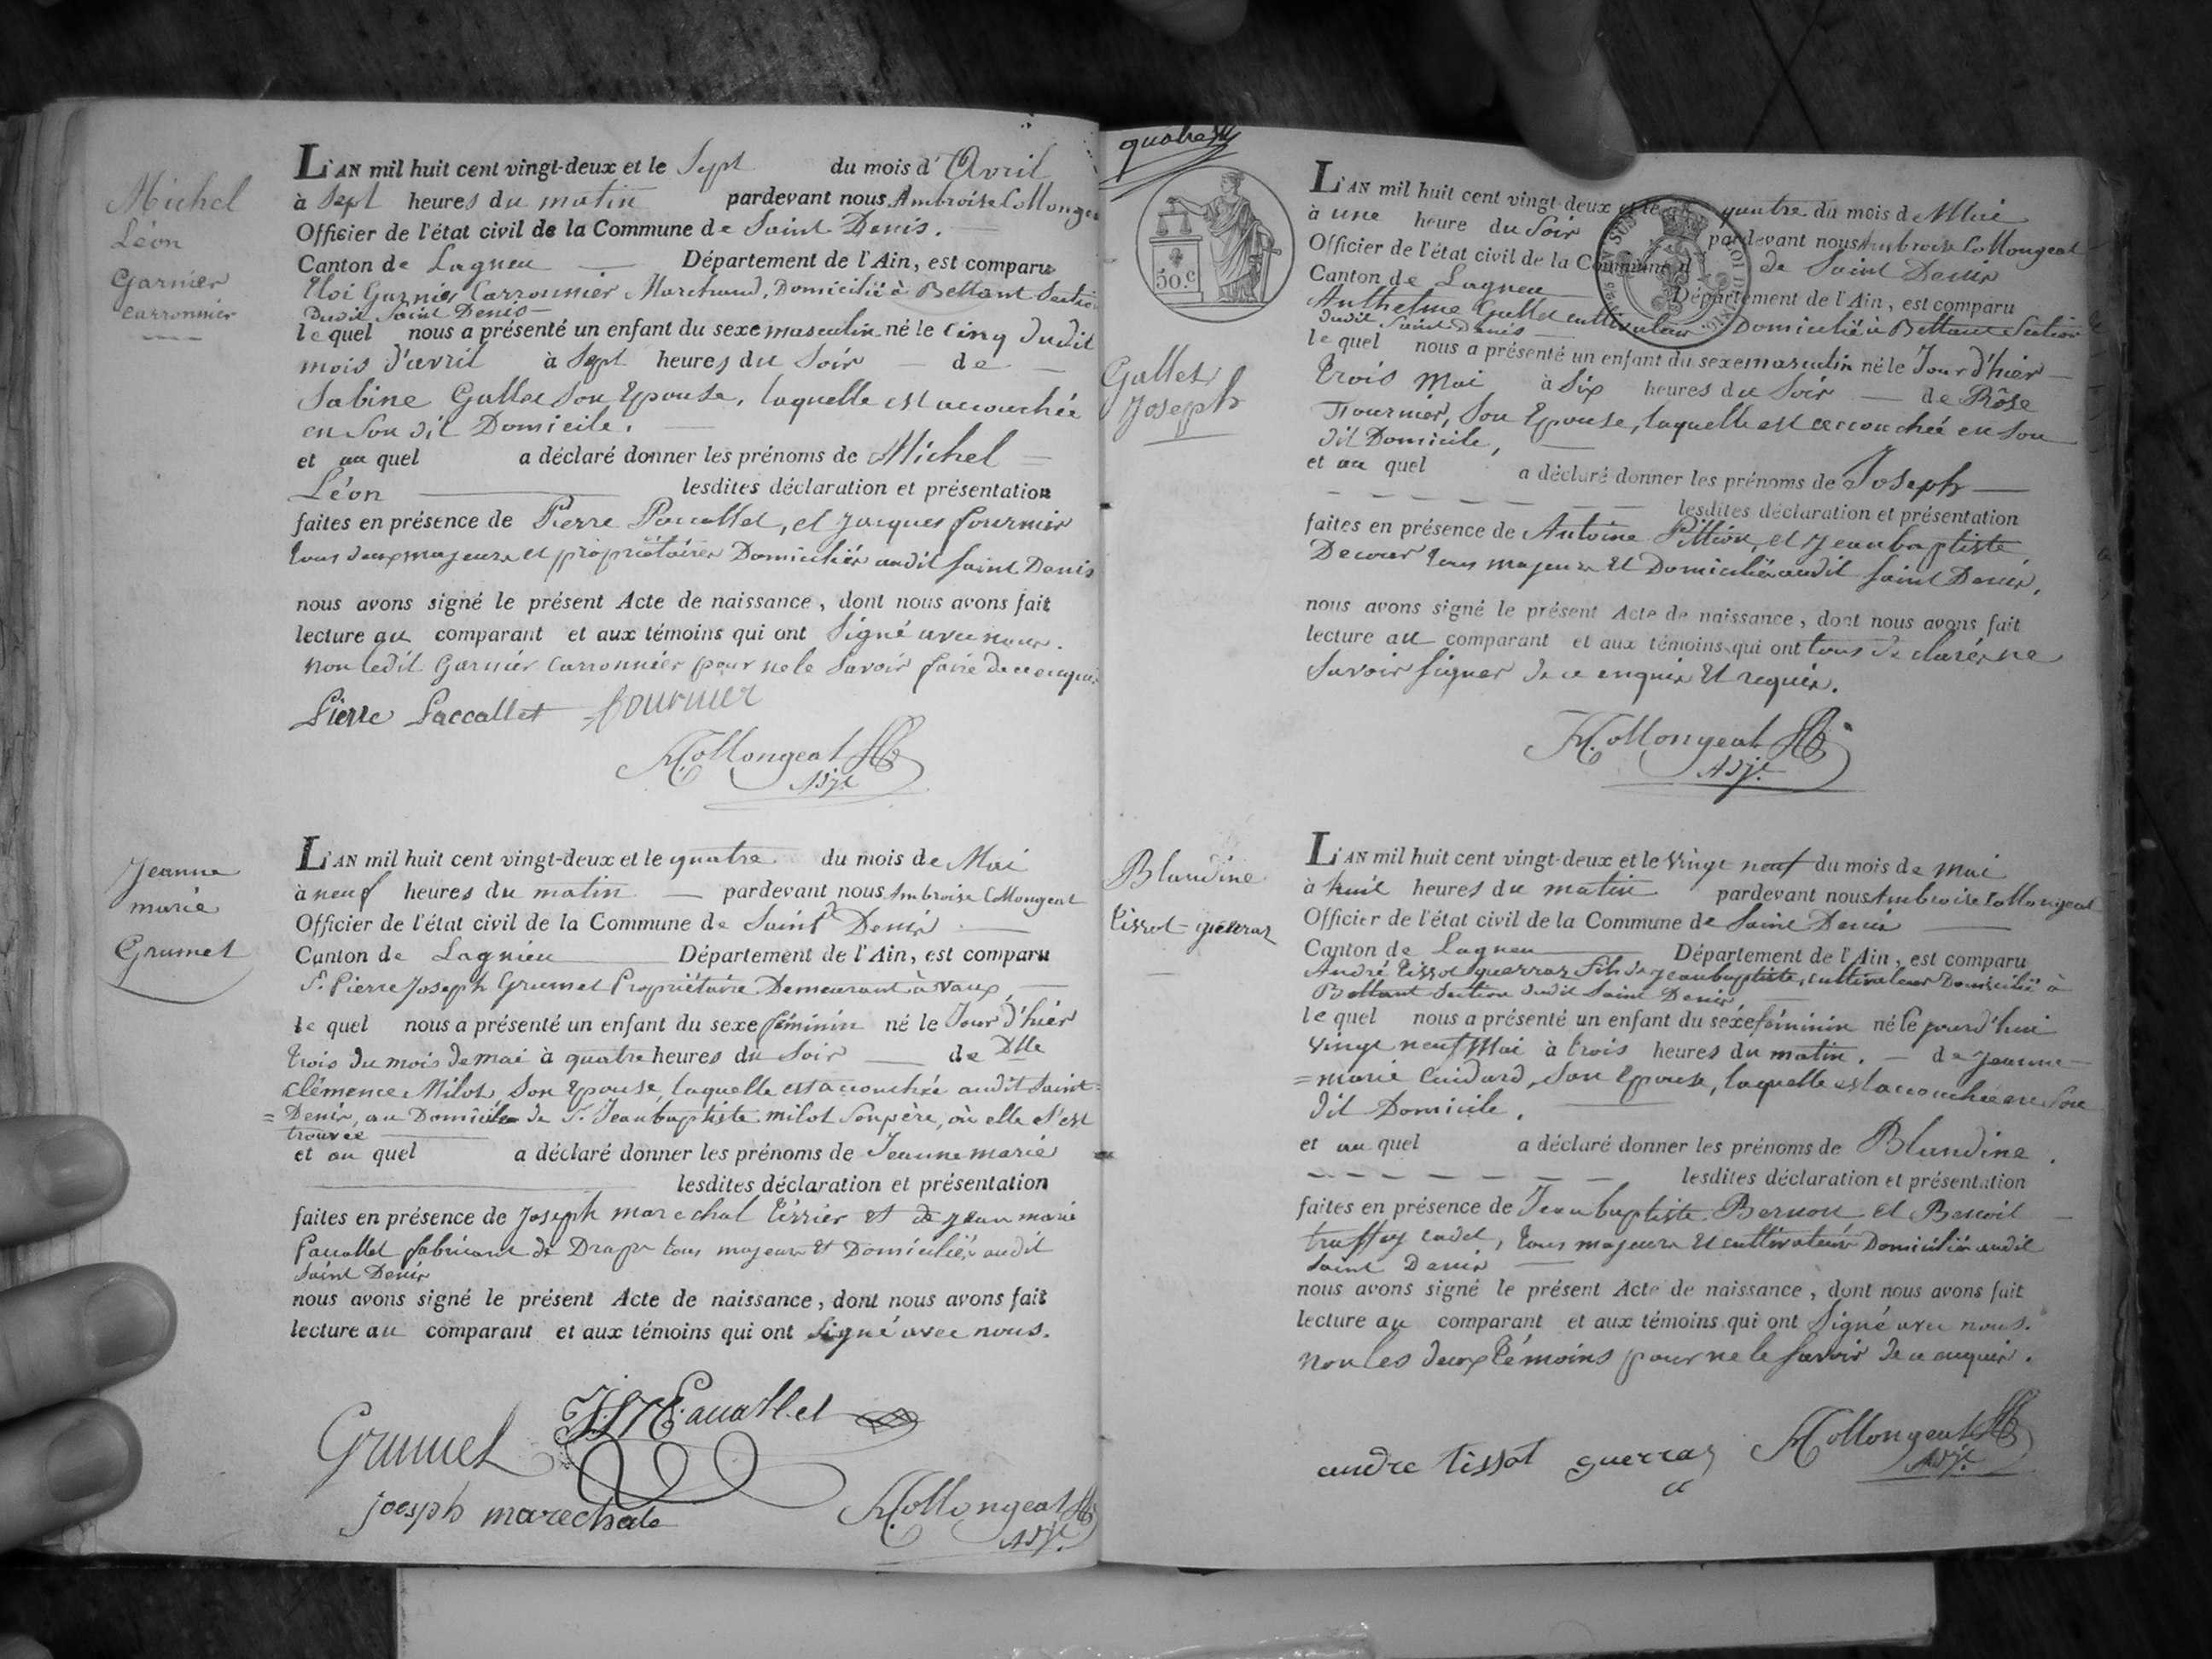 Michel
Léon
Garnier
carronnier
L'AN mil huit cent vingt-deux et le Sept du mois d'Avril
à Sept heures du matin pardevant nous Ambroise Collongeat
Officier de l'état civil de la Commune de Saint Denis.
Canton de Lagneu Département de l'Ain, est comparu
Eloi Garnier Carronnier Marchand, Domicilié à Bettant Section
dudit Saint Denis
lequel nous a présenté un enfant du sexe masculin né le Cinq dudit
mois d'avril à Sept heures du Soir de
Sabine Gullet son Epouse, laquelle est accouchée
en son dit Domicile.
et au quel a déclaré donner les prénoms de Michel
Léon lesdites déclaration et présentation
faites en présence de Pierre Paccallet, et Jacques fournier
tous deux majeurs et propriétaires Domiciliés audit Saint Denis
nous avons signé le présent Acte de naissance, dont nous avons fait
lecture au comparant et aux témoins qui ont Signé avec nous.
non ledit Garnier Carronnier pour ne le Savoir faire de ce enquis
Pierre Paccallet fournier
Collongeat
Adjt
Jeanne
marie
Grumet
L'AN mil huit cent vingt-deux et le quatre du mois de Mai
à neuf heures du matin pardevant nous Ambroise Collongeat
Officier de l'état civil de la Commune de Saint Denis
Canton de Lagnieu Département de l'Ain, est comparu
S. Pierre Joseph Grumet Propriétaire Demeurant à Vaux,
lequel nous a présenté un enfant du sexe féminin né le Jour d'hier
trois du mois de mai à quatre heures du Soir de Dlle
Clémence Milot, Son Epouse, laquelle est accouchée audit Saint=
=Denis, au Domicile de S. Jean baptiste milot Son père, où elle s'est
trouvée
et au quel a déclaré donner les prénoms de Jeanne marie
lesdites déclaration et présentation
faites en présence de Joseph marechal tissier et de Jean marie
Paccallet fabricant de Draps tous majeurs et Domiciliés audit
Saint Denis
nous avons signé le présent Acte de naissance, dont nous avons fait
lecture au comparant et aux témoins qui ont Signé avec nous.
Grumet J. M Paccallet
joesph marechale Collongeat
Adjt.
quatre
50.c
L'AN mil huit cent vingt-deux et le quatre du mois de Mai
à une heure du Soir pardevant nous Ambroise Collongeat
Officier de l'état civil de la Commune de Saint Denis
Canton de Lagneu Département de l'Ain, est comparu
Anthelme Gullet cultivateur Domicilié à Bettant Section
dudit Saint Denis
lequel nous a présenté un enfant du sexe masculin né le Jour d'hier
Gullet
Joseph
trois Mai à Six heures du Soir de Rôse
Fournier, Son Epouse, laquelle est accouchée en Son
dit Domicile,
et au quel a déclaré donner les prénoms de Joseph
lesdites déclaration et présentation
faites en présence de Antoine Pittion, et Jean baptiste
Decour tous majeurs et Domiciliés audit Saint Denis,
nous avons signé le présent Acte de naissance, dont nous avons fait
lecture au comparant et aux témoins qui ont tous déclaré ne
Savoir Signer de ce enquis et requis.
Collongeat
Adjt.
Blandine
tissot-guerraz
L'AN mil huit cent vingt-deux et le Vingt neuf du mois de Mai
à huit heures du matin pardevant nous Ambroise Collongeat
Officier de l'état civil de la Commune de Saint Denis
Canton de Lagneu Département de l'Ain, est comparu
André tissot guerraz fils de Jean baptiste, cultivateur Domicilié à
Bettant Section dudit Saint Denis
lequel nous a présenté un enfant du sexe féminin né ce jourd'hui
Vingt neuf Mai à trois heures du matin. de Jeanne
=marie Cuidard, Son Epouse, laquelle est accouchée en Son
dit Domicile.
et au quel a déclaré donner les prénoms de Blandine.
lesdites déclaration et présentation
faites en présence de Jean baptiste Bernou et Benoit
truffey cadet, tous majeurs et cultivateurs Domiciliés audit
Saint Denis
nous avons signé le présent Acte de naissance, dont nous avons fait
lecture au comparant et aux témoins qui ont Signé avec nous.
non les deux témoins pour ne le Savoir de ce enquis.
andre tissot guerraz Collongeat
Adjt.